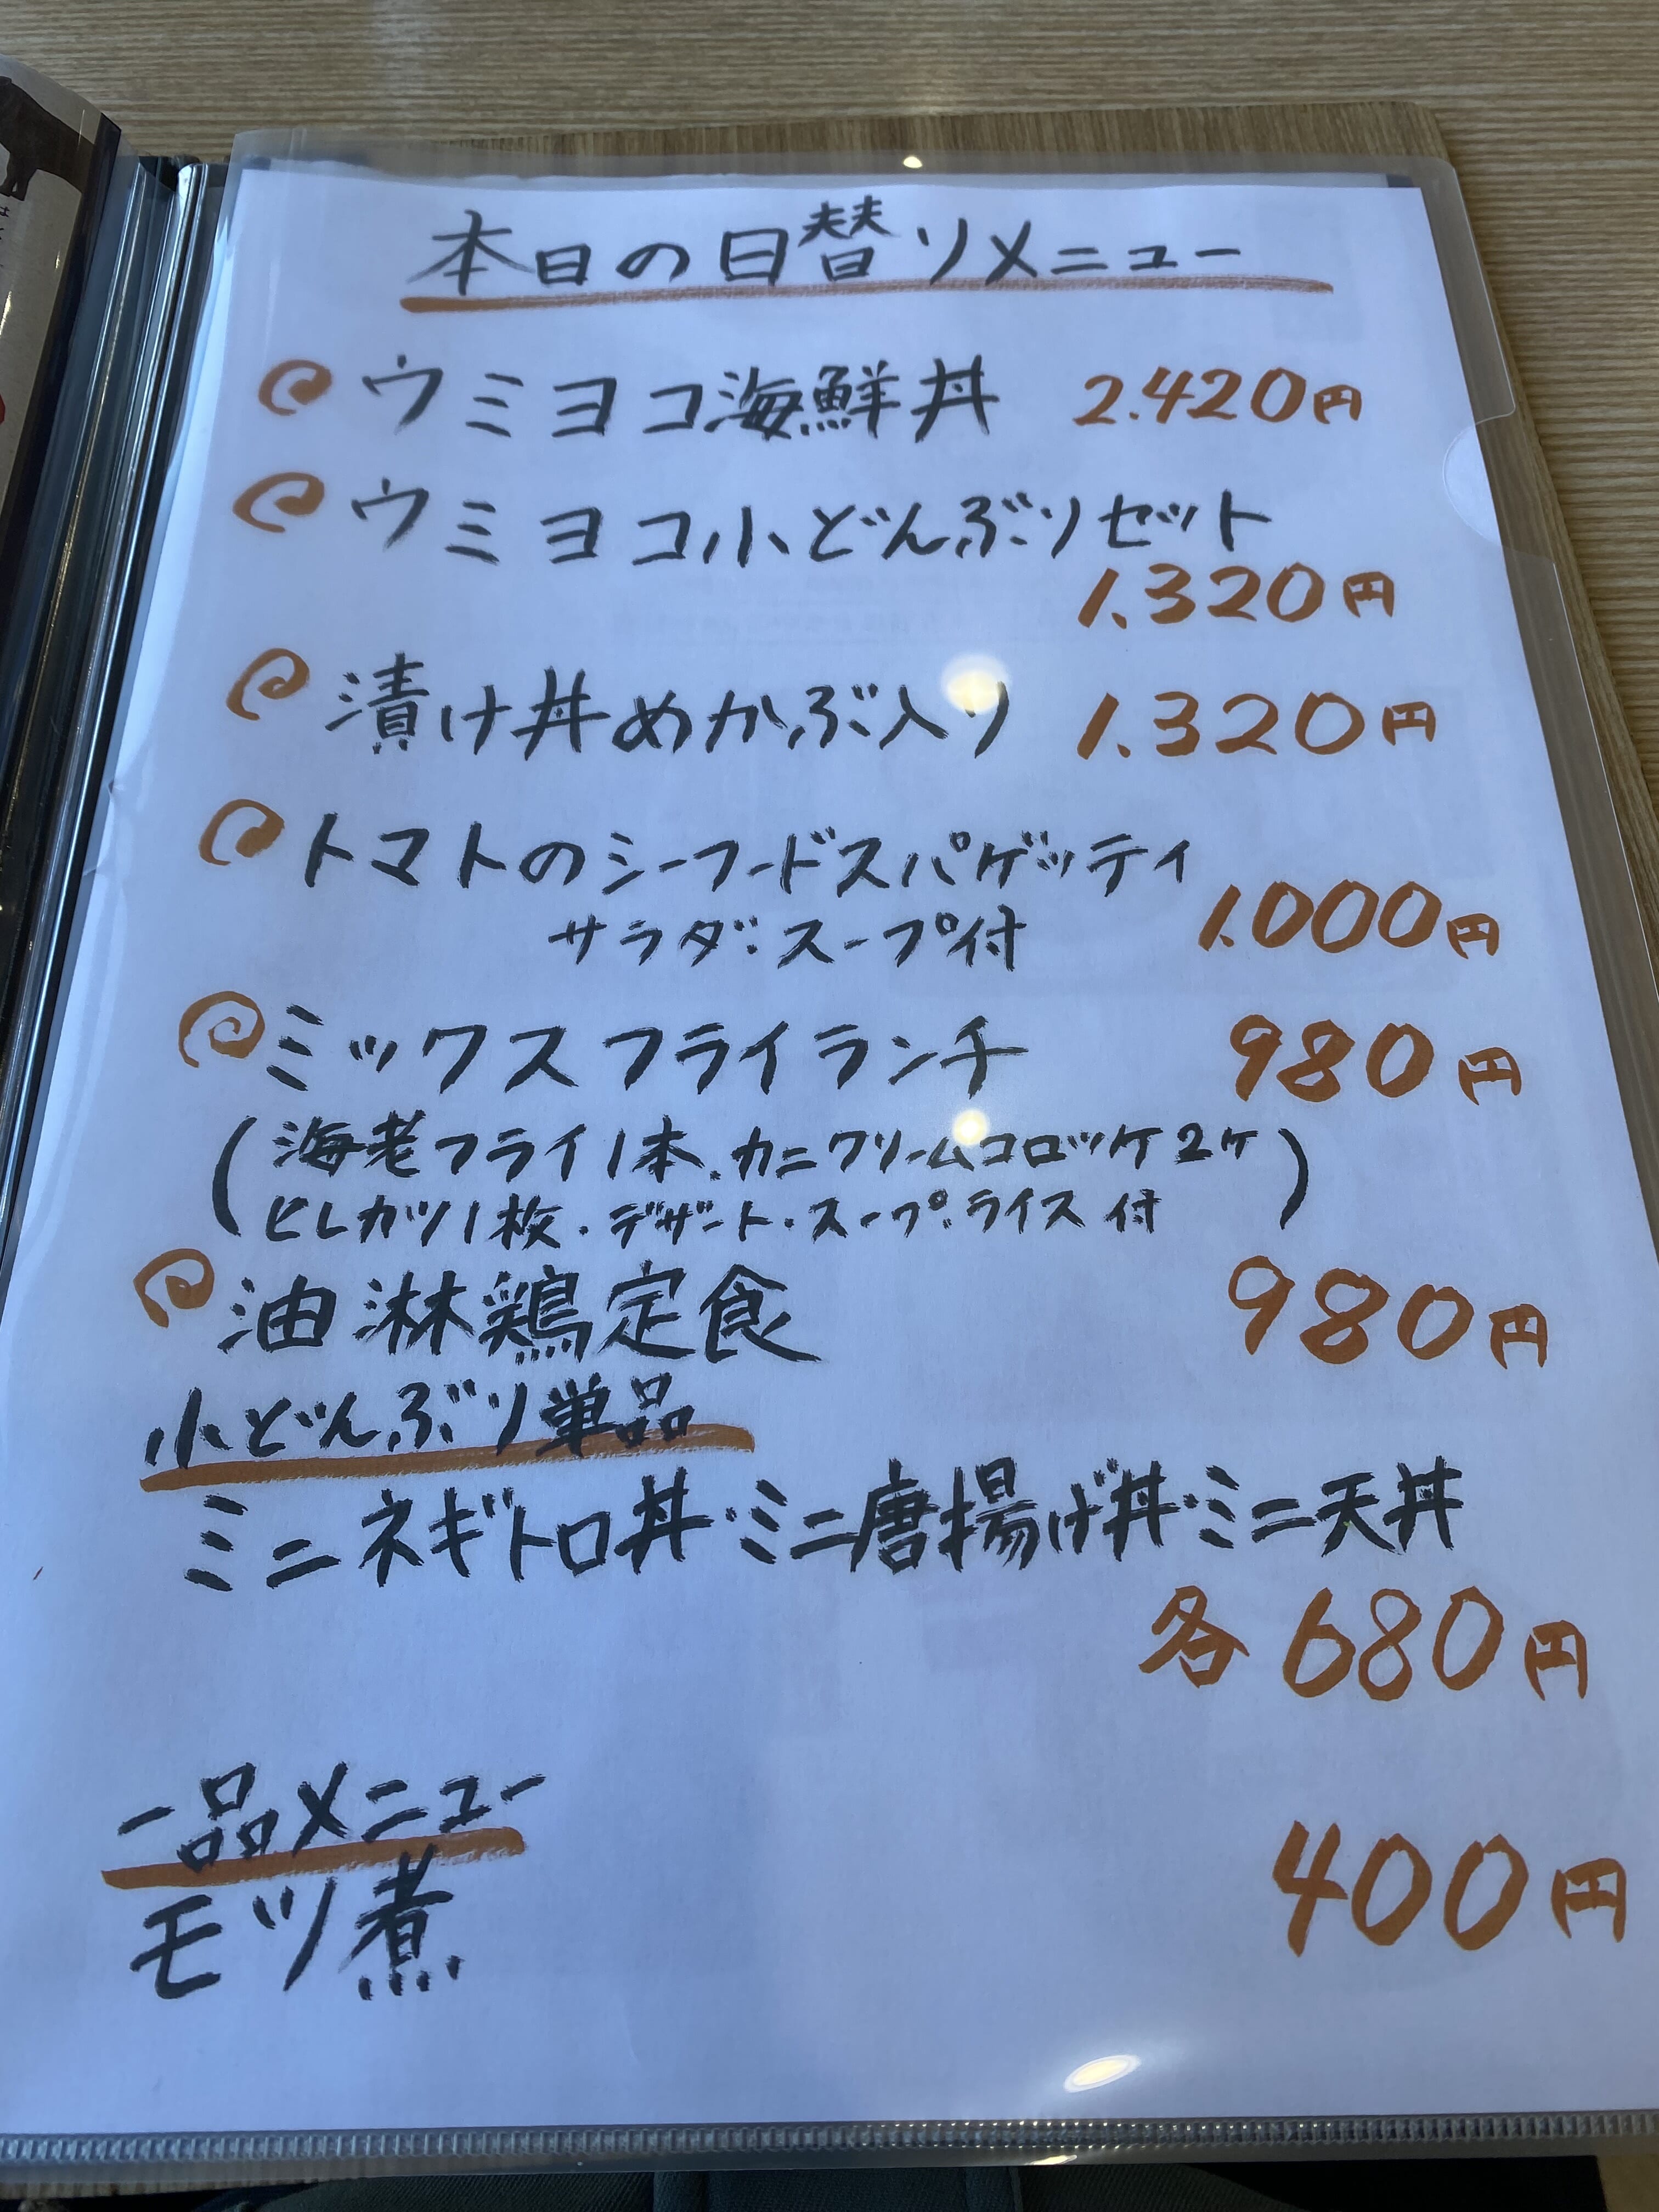 本日の日替りメニュー
ウミヨコ海鮮丼 2.420円
ウミヨコ小どんぶりセット
1.320円
漬け丼めかぶ入り 1.320円
トマトのシーフードスパゲッティ
サラダ・スープ付 1.000円
ミックスフライランチ 980円
(海老フライ1本・カニクリームコロッケ2ケ
ヒレカツ1枚・デザート・スープ・ライス付)
油淋鶏定食 980円
小どんぶり単品
ミニネギトロ丼・ミニ唐揚げ丼・ミニ天丼
各680円
一品メニュー
モツ煮 400円